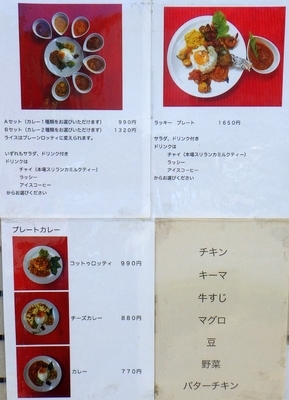 Aセット（カレー1種類をお選びいただけます） 990円
Bセット（カレー2種類をお選びいただけます） 1320円
ライスはプレーンロッティに変えられます。
いずれもサラダ、ドリンク付き
ドリンクは
チャイ（本場スリランカミルクティー）
ラッシー
アイスコーヒー
からお選びください
ラッキー プレート 1650円
サラダ、ドリンク付き
ドリンクは
チャイ（本場スリランカミルクティー）
ラッシー
アイスコーヒー
からお選びください
プレートカレー
コットゥロッティ 990円
チーズカレー 880円
カレー 770円
チキン
キーマ
牛すじ
マグロ
豆
野菜
バターチキン